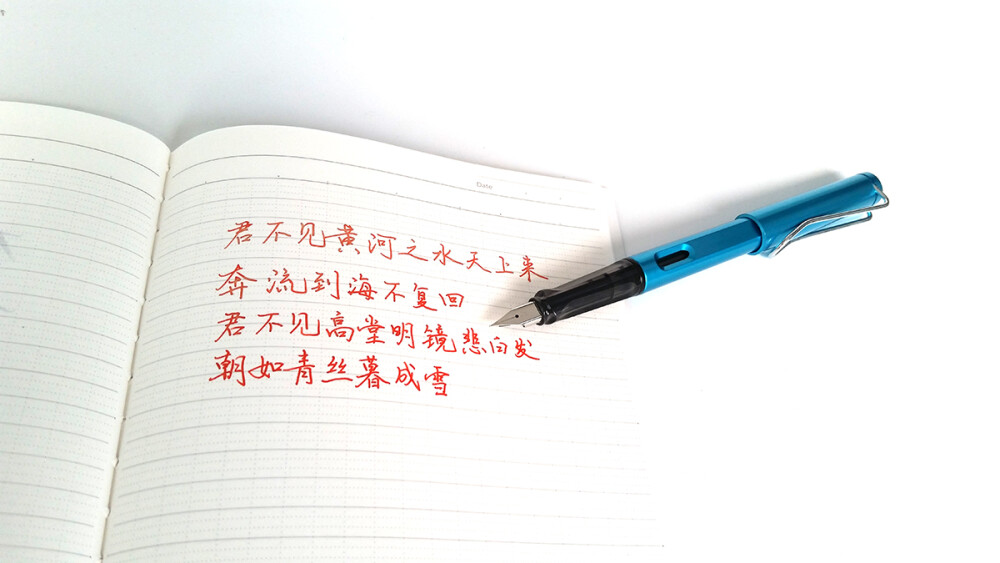 Date
君不见黄河之水天上来
奔流到海不复回
君不见高堂明镜悲白发
朝如青丝暮成雪